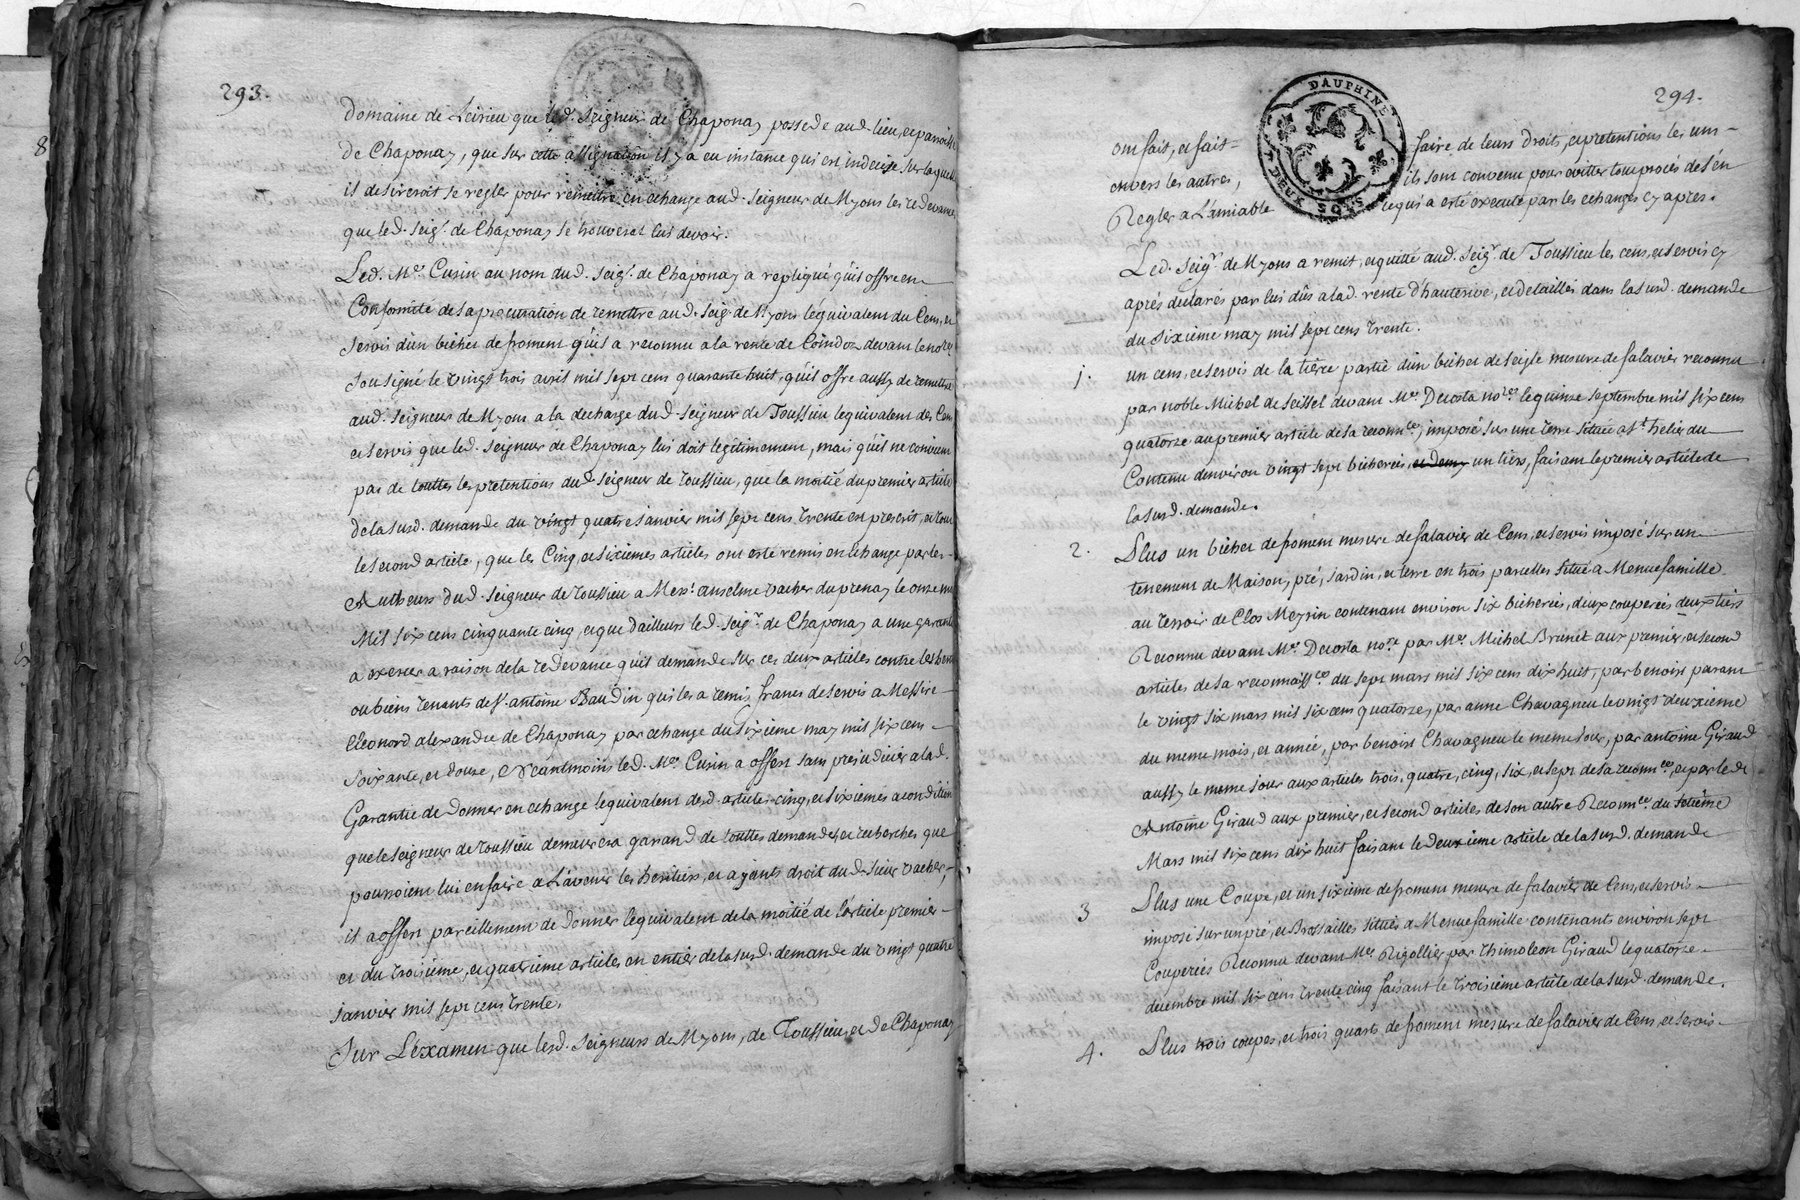 293.
Domaine de Leirieu que led. Seigneur de Chaponay possede aud. lieu, et paroisse
de Chaponay, que sur cette assignation il y a eu instance qui est indecise sur laquelle
il desireroit se regler pour remettre en echange aud. Seigneur de Myons les redevances
que led. Seig.r de Chaponay se trouverat lui devoir.
Led. M.e Cusin au nom dud. Seig.r de Chaponay a repliqué qu'il offre en
Conformité de sa procuration de remettre aud. Seig.r de Myons l'equivalent du Cens, et
servis d'un bichet de froment qu'il a reconnu a la rente de Coindoz devant le not.re
Sousigné le vingt trois avril mil sept cens quarante huit, qu'il offre aussy de remettre
aud. Seigneur de Myons a la decharge dud. Seigneur de Toussieu l'equivalent des Cens
et servis que led. Seigneur de Chaponay lui doit legitimement, mais qu'il ne convient
pas de touttes les pretentions dud. Seigneur de Toussieu, que la moitié du premier article
de la susd. demande du vingt quatre janvier mil sept cens trente est prescrit, et tout
le second article, que les Cinq, et sixiemes articles ont esté remis en échange par les
Autheurs dud. Seigneur de Toussieu a Mes.r anselme vacher du prenay le onze may
Mil six cens cinquante cinq, et que d'ailleurs led. Seig.r de Chaponay a une garantie
a exercer a raison de la redevance qu'il demande sur ces deux articles contre les heritiers
ou biens tenants de S.r antoine Baudin qui les a remis francs de servis a Messire
Eleonord alexandre de Chaponay par echange du sixieme may mil six cens
soixante, et douze, et neantmoins led. M.e Cusin a offert sans prejudicier a lad.
Garantie de donner en echange l'equivalent desd. articles cinq, et sixiemes a condition
que le seigneur de Toussieu demeurera garand de touttes demandes, et recherches que
pourroient lui en faire a L'avenir les heritiers, et ayants droit dud. Sieur vacher,
il a offert pareillement de donner l'equivalent de la moitié de l'article premier
et du troisieme, et quatrieme articles en entier de la susd. demande du vingt quatre
janvier mil sept cens trente.
Sur L'examen que lesd. Seigneurs de Myons, de Toussieu, et de Chaponay
294.
DAUPHINE
DEUX SOLS
ont fait, et fait faire de leurs droits, et pretentions les uns
envers les autres, ils sont convenu pour éviter tout procés de s'en
Regler a L'amiable ce qui a esté executé par les echanges cy apres.
Led. Seig.r de Myons a remit, et quitté aud. Seig.r de Toussieu les cens, et servis cy
aprés declarés par lui dûs a lad. rente d'hauterive, et detaillés dans la susd. demande
du sixieme may mil sept cens trente.
1. un cens, et servis de la tierce partie d'un bichet de seigle mesure de falavier reconnu
par noble Michel de Seissel devant M.e Decosta no.re le quinze septembre mil six cens
quatorze au premier article de sa reconn.ce, imposé sur une terre située a S.t helier du
Contenu d'environ vingt sept bicherées, et demy un tiers, faisant le premier article de
la susd. demande.
2. Plus un bichet de froment mesure de falavier de Cens, et servis imposé sur un
tenement de Maison, pré, jardin, et terre en trois parcelles situé a Menuefamille
au terroir de Clos Meysin contenant environ six bicherées, deux couperées deux tiers
Reconnu devant M.e Decosta no.re par M.e Michel Brunet aux premier, et second
articles de sa reconnoiss.ce du sept mars mil six cens dix huit, par benoist parant
le vingt six mars mil six cens quatorze, par anne Chavagneu le vingt deuxieme
du meme mois, et année, par benoist Chavagneu le meme jour, par antoine Giraud
aussy le meme jour aux articles trois, quatre, cinq, six, et sept de sa reconn.ce, et par led.
Antoine Giraud aux premier, et second articles de son autre Reconn.ce du setième
Mars mil six cens dix huit faisant le deuxieme article de la susd. demande
3 Plus une Coupe, et un sixième de froment mesure de falavier de Cens, et servis
imposé sur un pré, et Brossailles situés a Menuefamille contenants environ sept
Couperées Reconnu devant M.e Rigollier par Thimoleon Giraud le quatorze
decembre mil six cens trente cinq faisant le troisième article de la susd. demande.
4. Plus trois coupes, et trois quarts de froment mesure de falavier de Cens, et servis